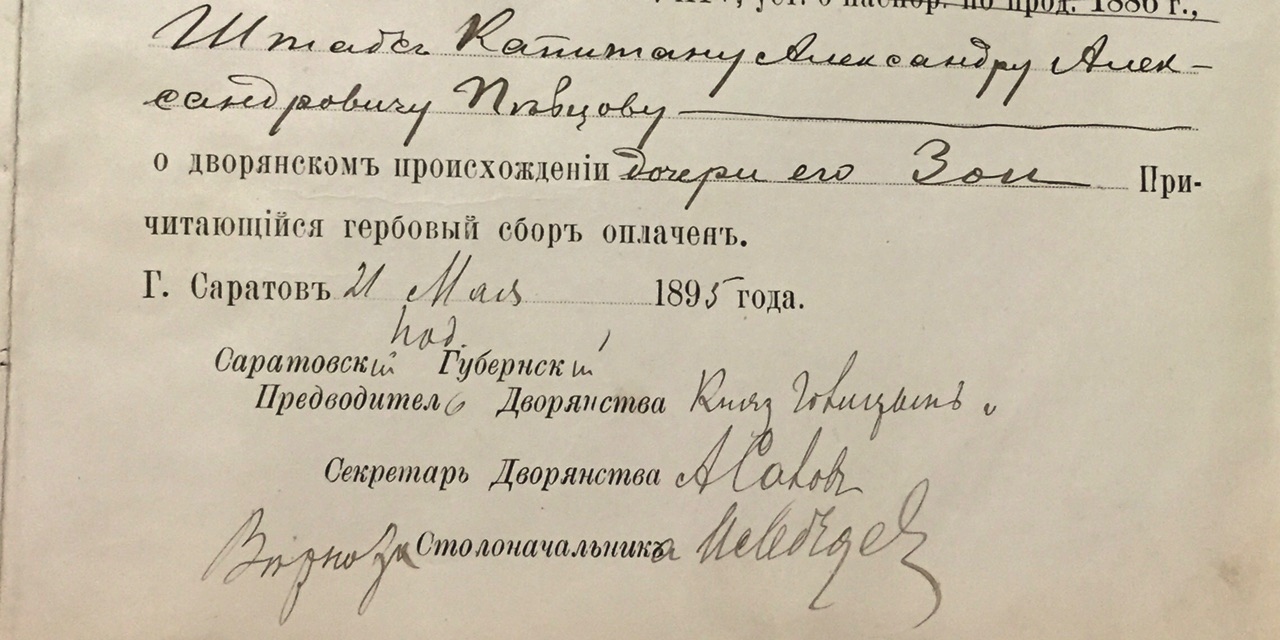 уст. о паспор. по прод. 1886 г.,
Штабсъ Капитану Александру Алек-
сандровичу Пѣвцову
о дворянскомъ происхожденіи дочери его Зои При-
читающійся гербовый сборъ оплаченъ.
Г. Саратовъ 21 Мая 1895 года.
под.
Саратовскій Губернскій
Предводитель Дворянства Князь Голицынъ
Секретарь Дворянства
Вѣрно: За Столоначальника Лебедев